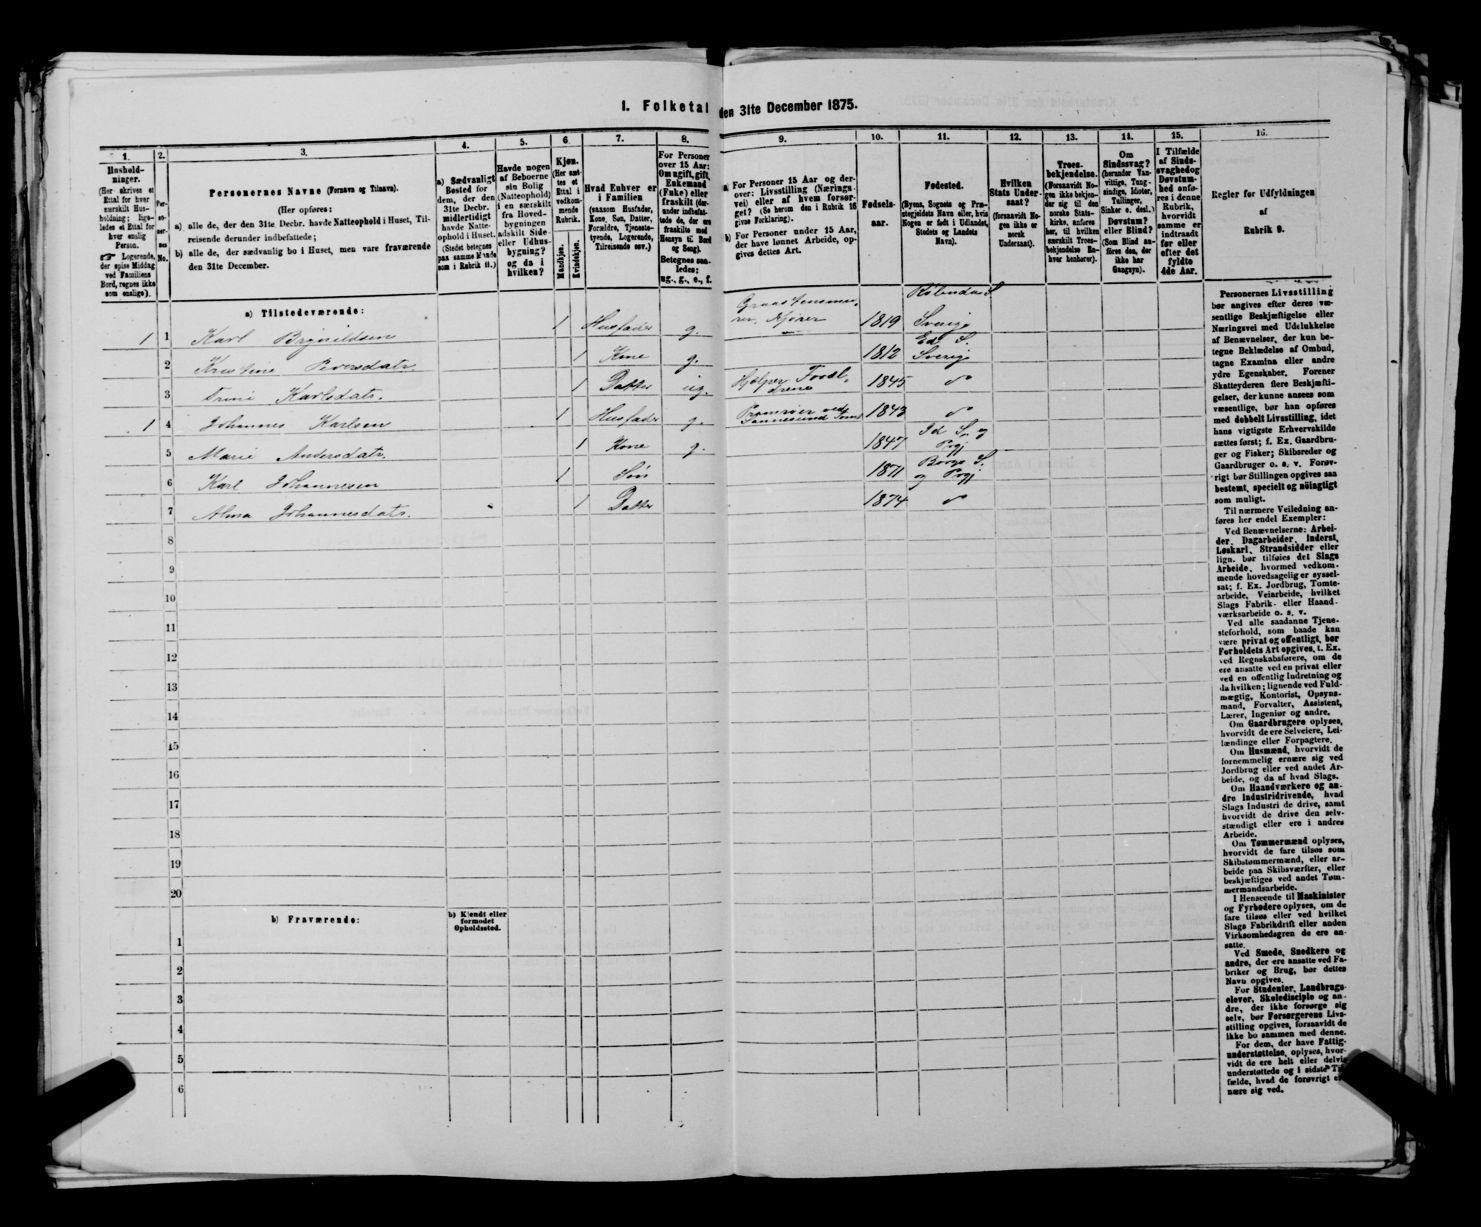 I. Folketal den 31te December 1875.
1.
Hushold-
ninger.
(Her skrives et
Ettal for hver
særskilt Hus-
holdning; lige-
ledes et Ettal for
hver enslig
Person.
☞ Logerende,
der spise Middag
ved Familiens
Bord, regnes ikke
som enslige).
2.
Per-
so-
ner-
nes
No.
3.
Personernes Navne (Fornavn og Tilnavn).
(Her opføres:
a) alle de, der den 31te Decbr. havde Natteophold i Huset, Til-
reisende derunder indbefattede;
b) alle de, der sædvanlig bo i Huset, men vare fraværende
den 31te December.
4.
a) Sædvanligt
Bosted for
dem, der den
31te Decbr.
midlertidigt
havde Natte-
ophold i Huset.
(Stedet betegnes
paa samme Maade
som i Rubrik 11.)
5.
Havde nogen
af Beboerne
sin Bolig
(Natteophold)
i en særskilt
fra Hoved-
bygningen
adskilt Side-
eller Udhus-
bygning?
og da i
hvilken?
6.
Kjøn.
(Her sæt-
tes et
Ettal i
vedkom-
mende
Rubrik.
Mandkjøn.
Kvindekjøn.
7.
Hvad Enhver er
i Familien
(saasom Husfader,
Kone, Søn, Datter,
Forældre, Tjeneste-
tyende, Logerende,
Tilreisende osv.)
8.
For Personer
over 15 Aar:
Om ugift, gift,
Enkemand
(Enke) eller
fraskilt (der-
under indbefat-
tede de, der ere
fraskilte med
Hensyn til Bord
og Seng).
Betegnes saa-
ledes:
ug., g., e., f.
9.
a) For Personer 15 Aar og der-
over: Livsstilling (Nærings-
vei) eller af hvem forsør-
get? (Se herom den i Rubrik 16
givne Forklaring).
b) For Personer under 15 Aar,
der have lønnet Arbeide, op-
gives dettes Art.
10.
Fødsels-
aar.
11.
Fødested.
(Byens, Sognets og Præ-
stegjeldets Navn eller, hvis
Nogen er født i Udlandet,
Stedets og Landets
Navn).
12.
Hvilken
Stats Under-
saat?
(forsaavidt No-
gen ikke er
norsk
Undersaat).
13.
Troes-
bekjendelse.
(Forsaavidt No-
gen ikke bekjen-
der sig til den
norske Stats-
kirke, anføres
her, til hvilken
særskilt Troes-
bekjendelse En-
hver henhører).
14.
Om
Sindssvag?
(herunder Van-
vittige, Tung-
sindige, Idioter,
Tullinger,
Sinker o. desl.)
Døvstum?
eller Blind?
(Som Blind an-
føres den, der
ikke har
Gangsyn).
15.
I Tilfælde
af Sinds-
svaghed og
Døvstum-
hed anfø-
res i denne
Rubrik,
hvorvidt
samme er
indtraadt
før eller
efter det
fyldte
4de Aar.
16.
Regler for Udfyldningen
af
Rubrik 9.
a) Tilstedeværende:
1 1 Karl Brynildsen 1 Husfader g. 1819 Sverig
2 Kristine Iversdatr 1 Kone g. 1812 Sverig
3 Trine Karlsdatr. 1 Datter ug. 1845
1 4 Johannes Karlsen 1 Husfader g. 1843
5 Marie Andersdatr. 1 Kone g. 1847 Id S. og Prgj
6 Karl Johannesen 1 Søn 1871 Borge S. og Prgj
7 Alma Johannesdatr. 1 Datter 1874
8
9
10
11
12
13
14
15
16
17
18
19
20
b) Fraværende:
b) Kjendt eller
formodet
Opholdssted.
1
2
3
4
5
6
Personernes Livsstilling
bør angives efter deres væ-
sentlige Beskjæftigelse eller
Næringsvei med Udelukkelse
af Benævnelser, der kun be-
tegne Beklædelse af Ombud,
tagne Examina eller andre
ydre Egenskaber. Forener
Skatteyderen flere Beskjæfti-
gelser, der kunne ansees som
væsentlige, bør han opføres
med dobbelt Livsstilling, idet
hans vigtigste Erhvervskilde
sættes først; f. Ex. Gaardbru-
ger og Fisker; Skibsreder og
Gaardbruger o. s. v. Forøv-
rigt bør Stillingen opgives saa
bestemt, specielt og nøiagtigt
som muligt.
Til nærmere Veiledning an-
føres her endel Exempler:
Ved Benævnelserne: Arbei-
der, Dagarbeider, Inderst,
Løskarl, Strandsidder eller
lign. bør tilføies det Slags
Arbeide, hvormed vedkom-
mende hovedsagelig er syssel-
sat; f. Ex. Jordbrug, Tomte-
arbeide, Veiarbeide, hvilket
Slags Fabrik- eller Haand-
værksarbeide o. s. v.
Ved alle saadanne Tjene-
steforhold, som baade kan
være privat og offentligt, bør
Forholdets Art opgives, t. Ex.
ved Regnskabsførere, om de
ere ansatte ved en privat eller
ved en offentlig Indretning og
da hvilken; lignende ved Fuld-
mægtig, Kontorist, Opsyns-
mand, Forvalter, Assistent,
Lærer, Ingeniør og andre.
Om Gaardbrugere oplyses,
hvorvidt de ere Selveiere, Lei-
lændinge eller Forpagtere.
Om Husmænd, hvorvidt de
fornemmelig ernære sig ved
Jordbrug eller ved andet Ar-
beide, og da af hvad Slags.
Om Haandværkere og an-
dre Industridrivende, hvad
Slags Industri de drive, samt
hvorvidt de drive den selv-
stændigt eller ere i andres
Arbeide.
Om Tømmermænd oplyses,
hvorvidt de fare tilsøs som
Skibstømmermænd, eller ar-
beide paa Skibsværfter, eller
beskjæftiges ved andet Tøm-
mermandsarbeide.
I Henseende til Maskinister
og Fyrbødere oplyses, om de
fare tilsøs eller ved hvilket
Slags Fabrikdrift eller anden
Virksomhedsgren de ere an-
satte.
Ved Smede, Snedkere og
andre, der ere ansatte ved Fa-
briker og Brug, bør dettes
Navn opgives.
For Studenter, Landbrugs-
elever, Skoledisciple og an-
dre, der ikke forsørge sig
selv, bør Forsørgerens Livs-
stilling opgives, forsaavidt de
ikke bo sammen med denne.
For dem, der have Fattig-
understøttelse, oplyses, hvor-
vidt de ere helt eller delvis
understøttede og i sidste Til-
fælde, hvad de forøvrigt er-
nære sig ved.